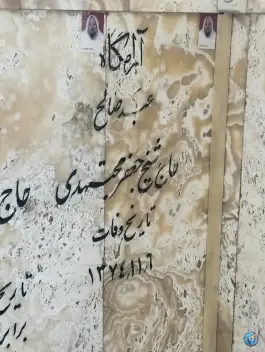 آرامگاه
عبد صالح
حاج شیخ جعفر مجتهدی
تاریخ وفات
۱۳۷۴/۱۱/۶
حاج
تاریخ
برابر